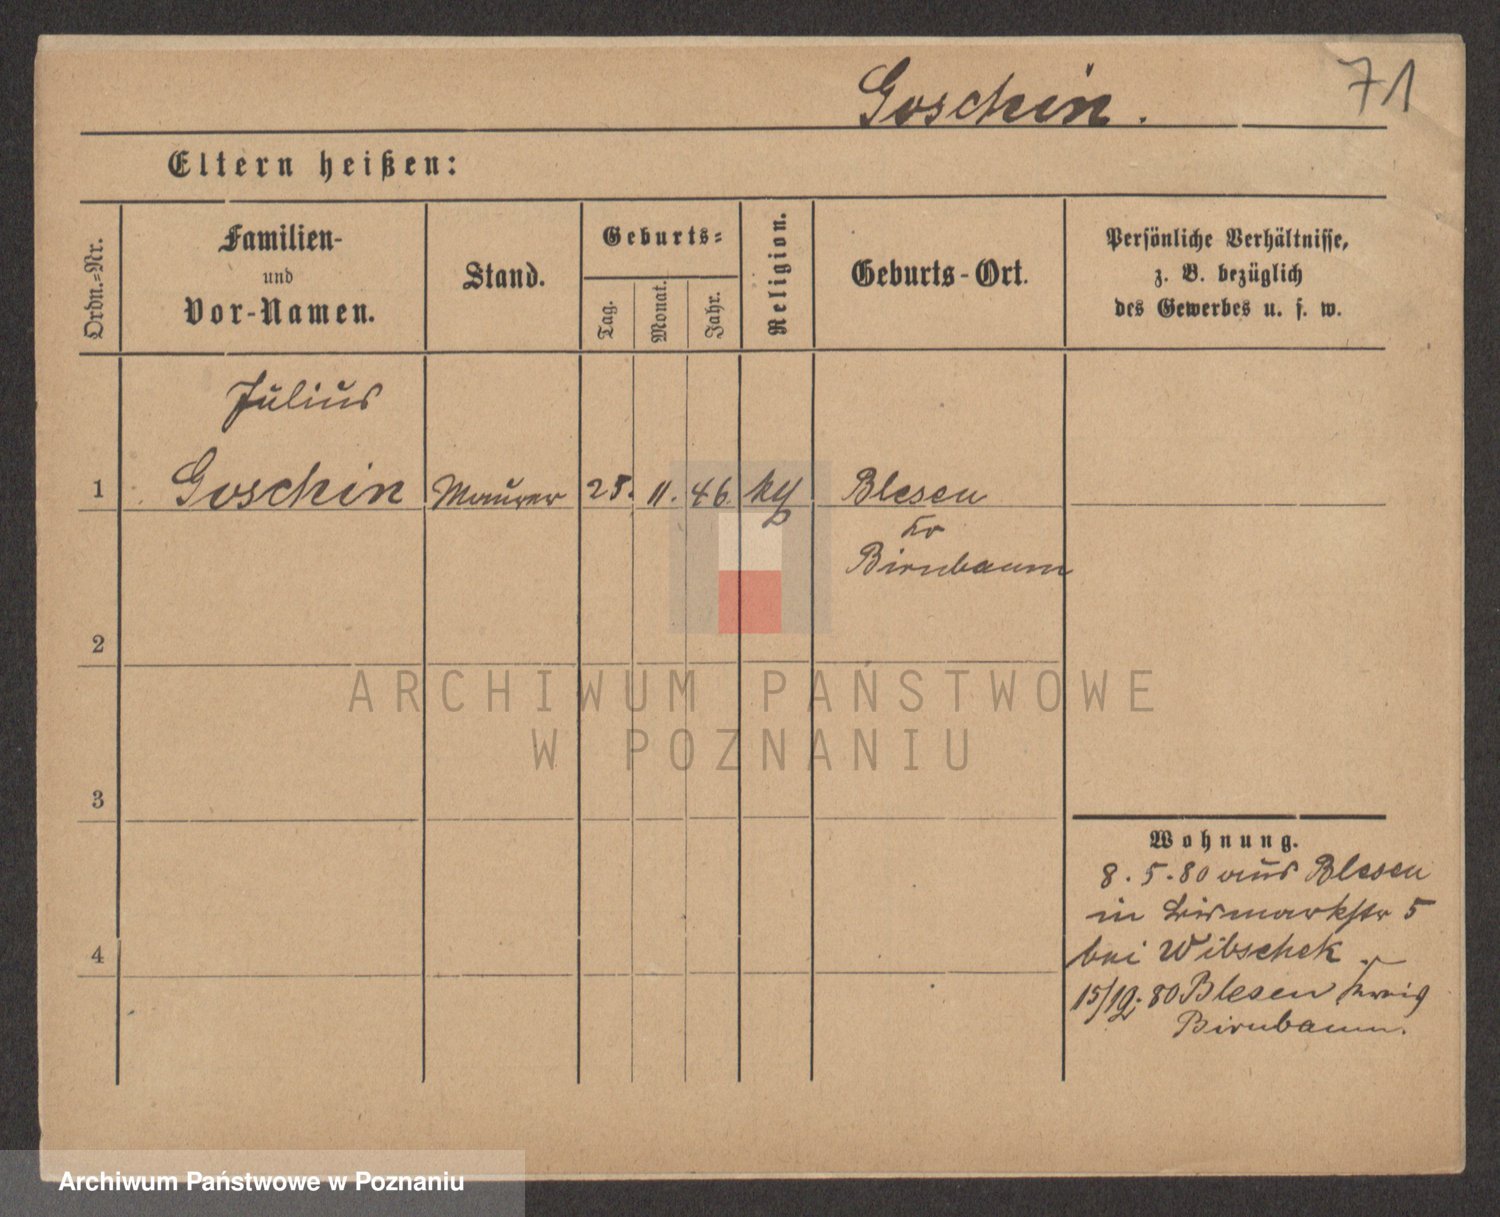 Goschin.
71
Eltern heißen:
Ordn.-Nr.
Familien-
und
Vor-Namen.
Stand.
Geburts-
Tag.
Monat.
Jahr.
Religion.
Geburts-Ort.
Persönliche Verhältnisse,
z. B. bezüglich
des Gewerbes u. s. w.
Julius
1 Goschin Maurer 25. 11. 46 kg Blesen
Kr
Birnbaum
2
3
4
Wohnung.
8.5.80 aus Blesen
in Bismarkstr 5
bei Wibschek
80 Blesen Kreis
Birnbaum.
ARCHIWUM PAŃSTWOWE
W POZNANIU
Archiwum Państwowe w Poznaniu